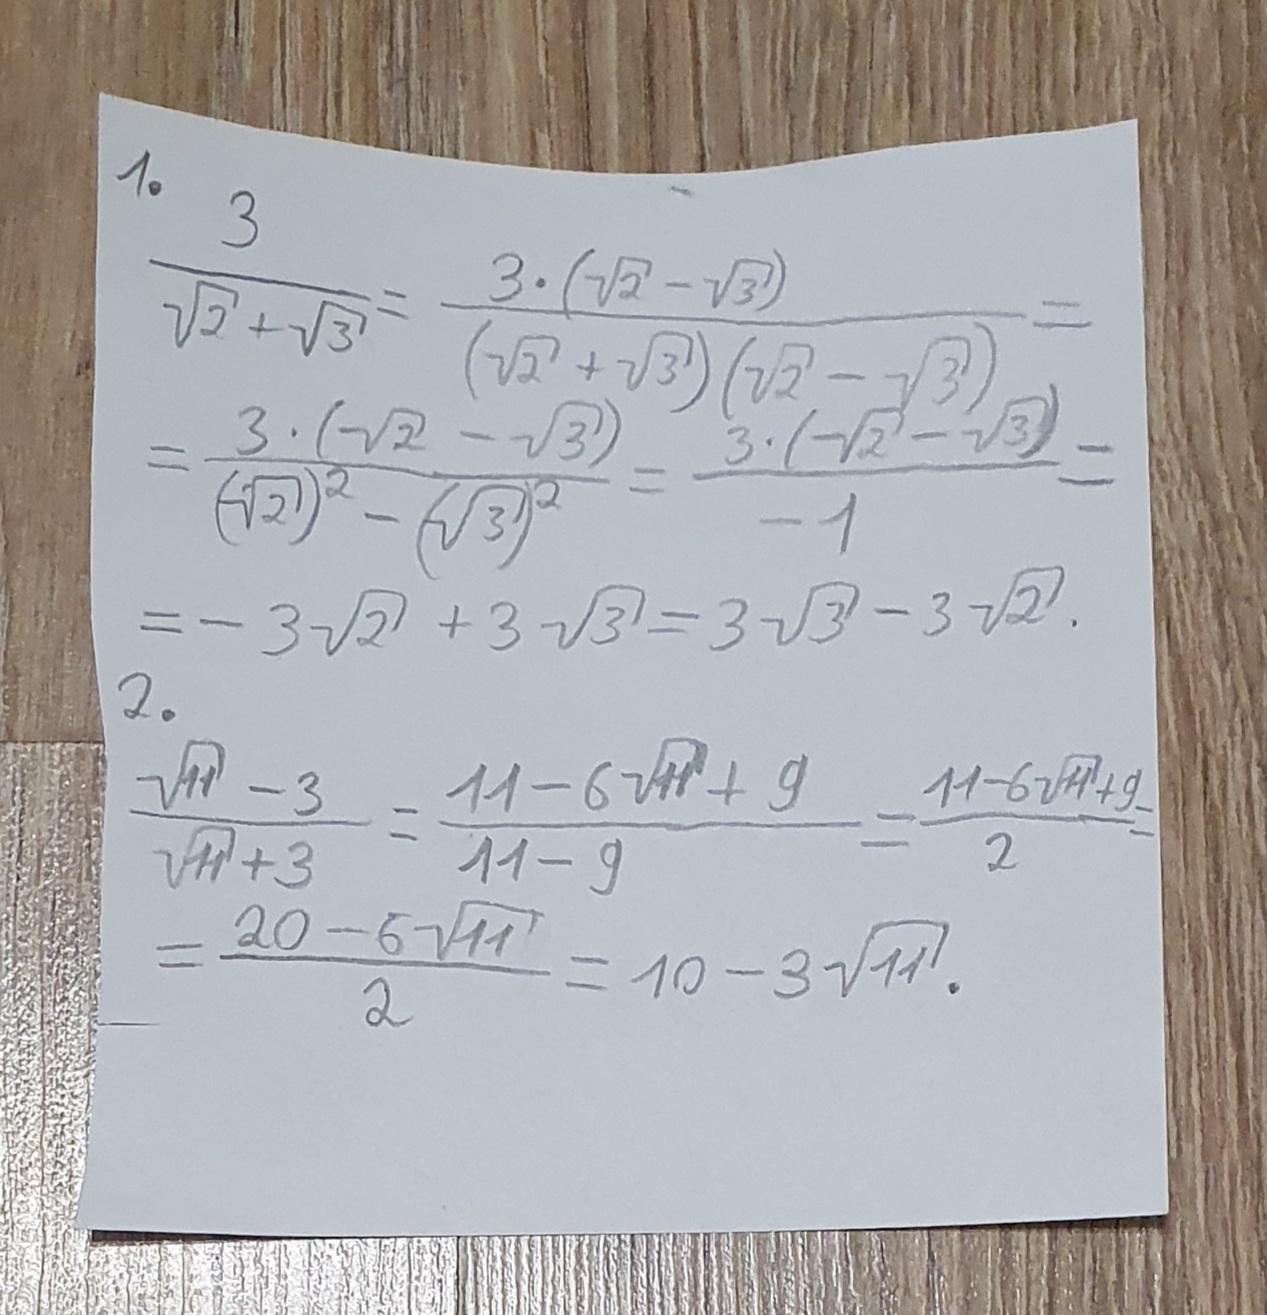 1.
3/(√2 + √3) = 3·(√2 - √3)/((√2 + √3)(√2 - √3)) =
= 3·(√2 - √3)/((√2)² - (√3)²) = 3·(√2 - √3)/(-1) =
= -3√2 + 3√3 = 3√3 - 3√2.
2.
(√11 - 3)/(√11 + 3) = (11 - 6√11 + 9)/(11 - 9) = (11 - 6√11 + 9)/2 =
= (20 - 6√11)/2 = 10 - 3√11.